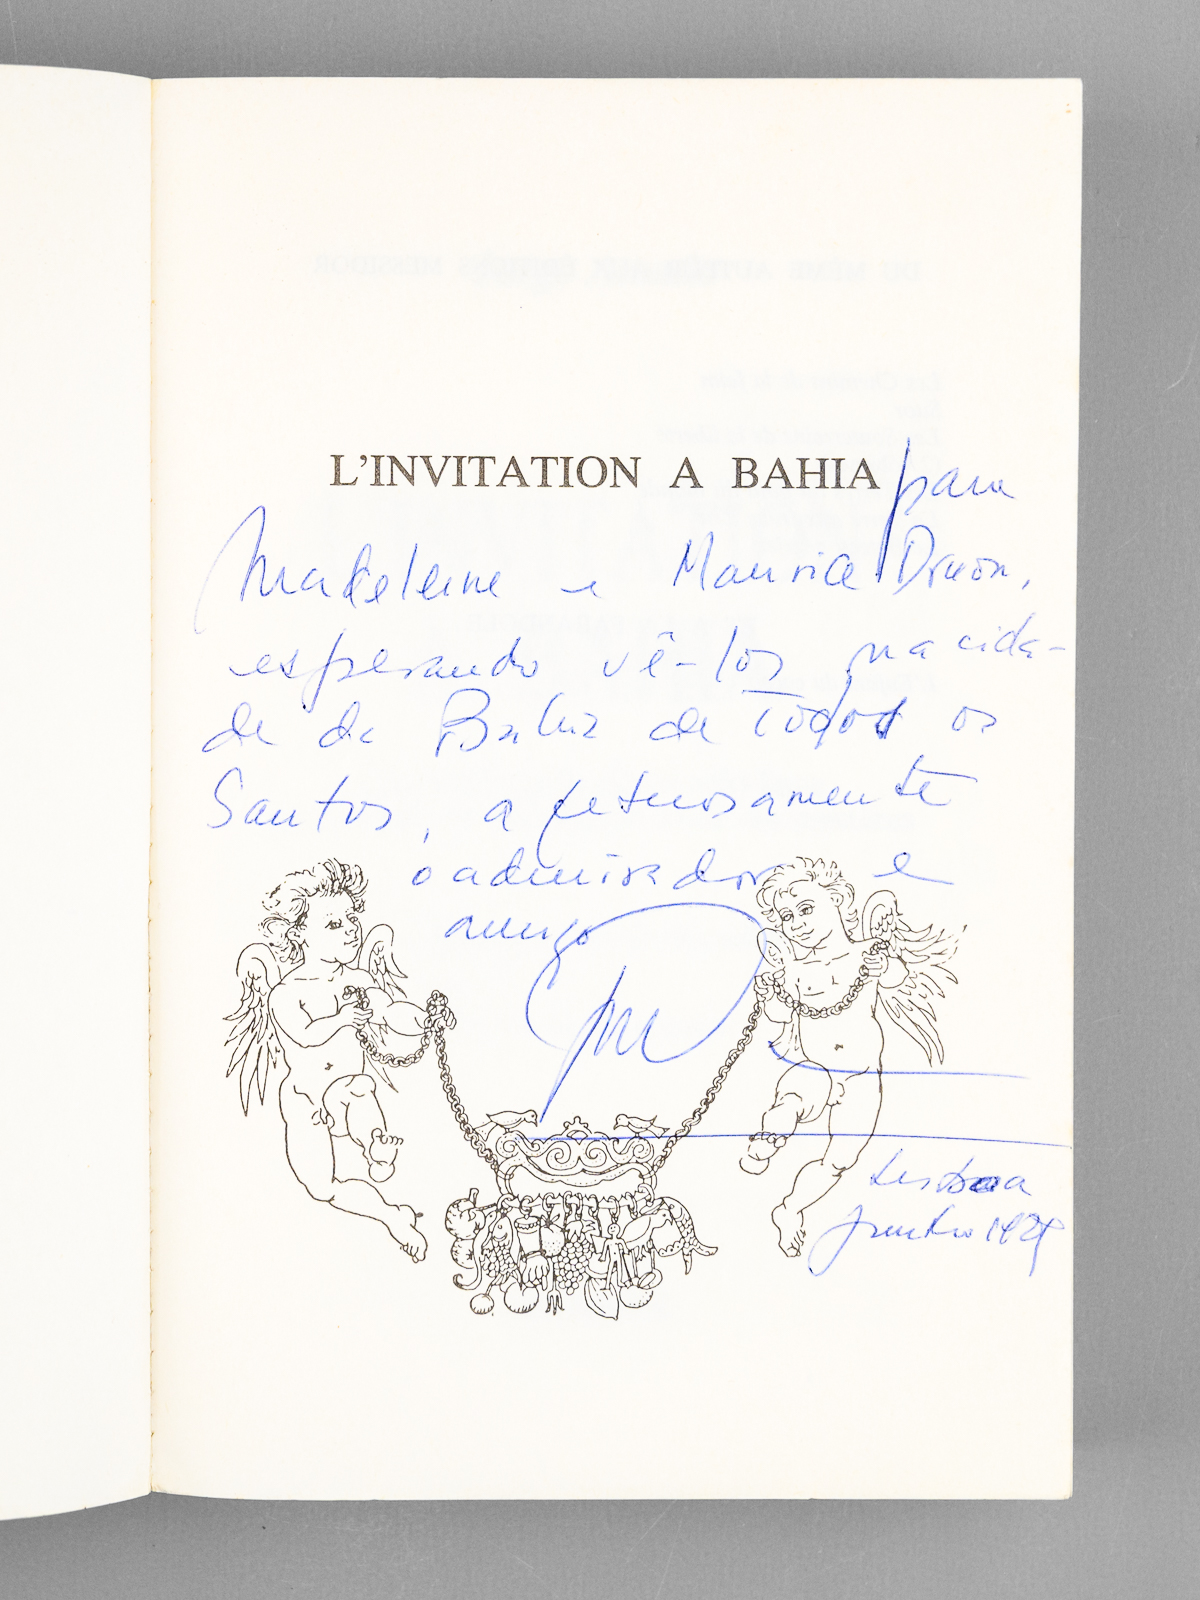 L'INVITATION A BAHIA
para
Madeleine e Maurice Druon,
esperando vê-los na cida-
de da Bahia de Todos os
Santos, afetuosamente
o admirador e
amigo
Lisboa
Junho